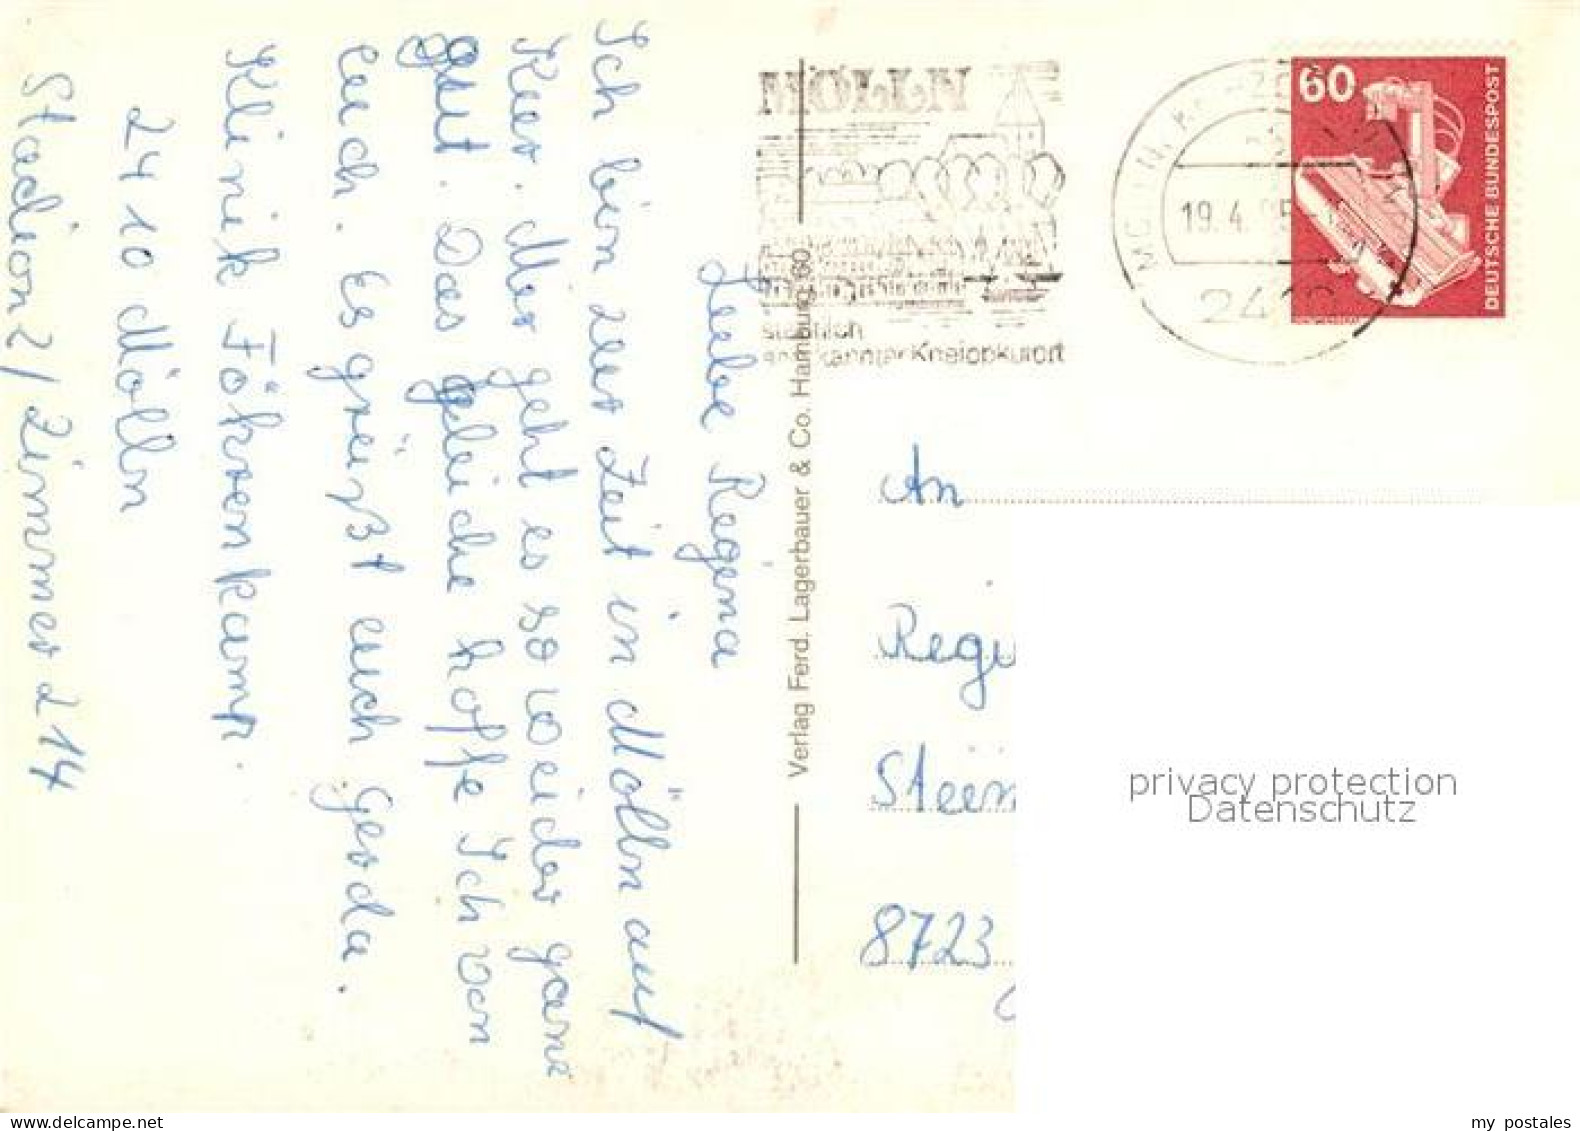 Liebe Regina
Ich bin zur Zeit in Mölln auf
Kur. Mir geht es so weider ganz
gut. Das geleiche hoffe Ich von
euch. Es grüßt euch Gerda.
Klinik Föhrenkamp.
2410 Mölln
Stadion 2/ Zimmer 214
MÖLLN
staatlich
anerkannter Kneippkurort
19.4.
60
DEUTSCHE BUNDESPOST
Verlag Ferd. Lagerbauer & Co. Hamburg 60
An
Regi
Stein
8723
privacy protection
Datenschutz
www.delcampe.net
my_postales